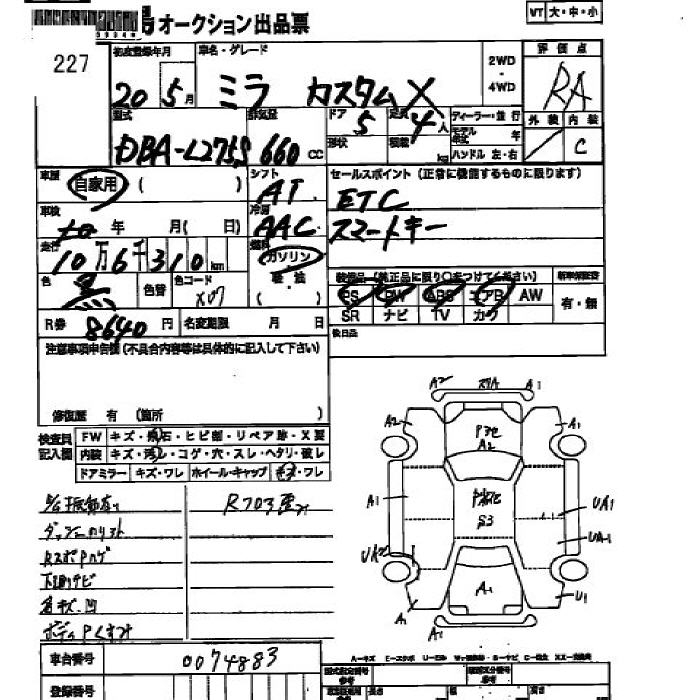 オークション出品票
VT 大・中・小
227
初度登録年月 車名・グレード 2WD・4WD 評価点
20 5月 ミラ カスタムX RA
型式 排気量 ドア 定員 ディーラー・並行 外装 内装
DBA-L275S 660 cc 5 4人 モデル年式 年 C
形状 積載 kg ハンドル 左・右
車歴 自家用 ( ) シフト AT セールスポイント (正常に機能するものに限ります)
ETC
車検 年 月 ( 日) 冷房 AAC スマートキー
走行 10万6千310km 燃料 ガソリン
装備品 (純正品に限り○をつけてください) 新車保証書
色 黒 色替 色コード X07 ( )
PS PW ABS エアB AW 有・無
SR ナビ TV カワ
R券 8640円 名変期限 月 日 後日品
注意事項申告欄(不具合内容等は具体的に記入して下さい)
修復歴 有 (箇所 )
検査員記入欄 FW キズ・飛石・ヒビ部・リペア跡・X要
内装 キズ・汚レ・コゲ・穴・スレ・ヘタリ・破レ
ドアミラー キズ・ワレ ホイール・キャップ キズ・ワレ
下廻サビ
各キズ、凹
A2 A1
A2 P3セ A2 A1
A1 S3 UA1
UA2 UA1
A1 A1 U1
A1
車台番号 0074883
登録番号